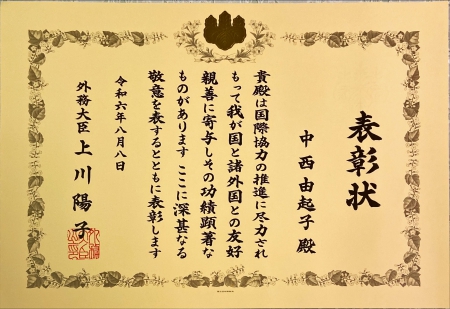 表彰状
中西由起子 殿
貴殿は国際協力の推進に尽力され
もって我が国と諸外国との友好
親善に寄与しその功績顕著な
ものがあります ここに深甚なる
敬意を表するとともに表彰します
令和六年八月八日
外務大臣 上川陽子